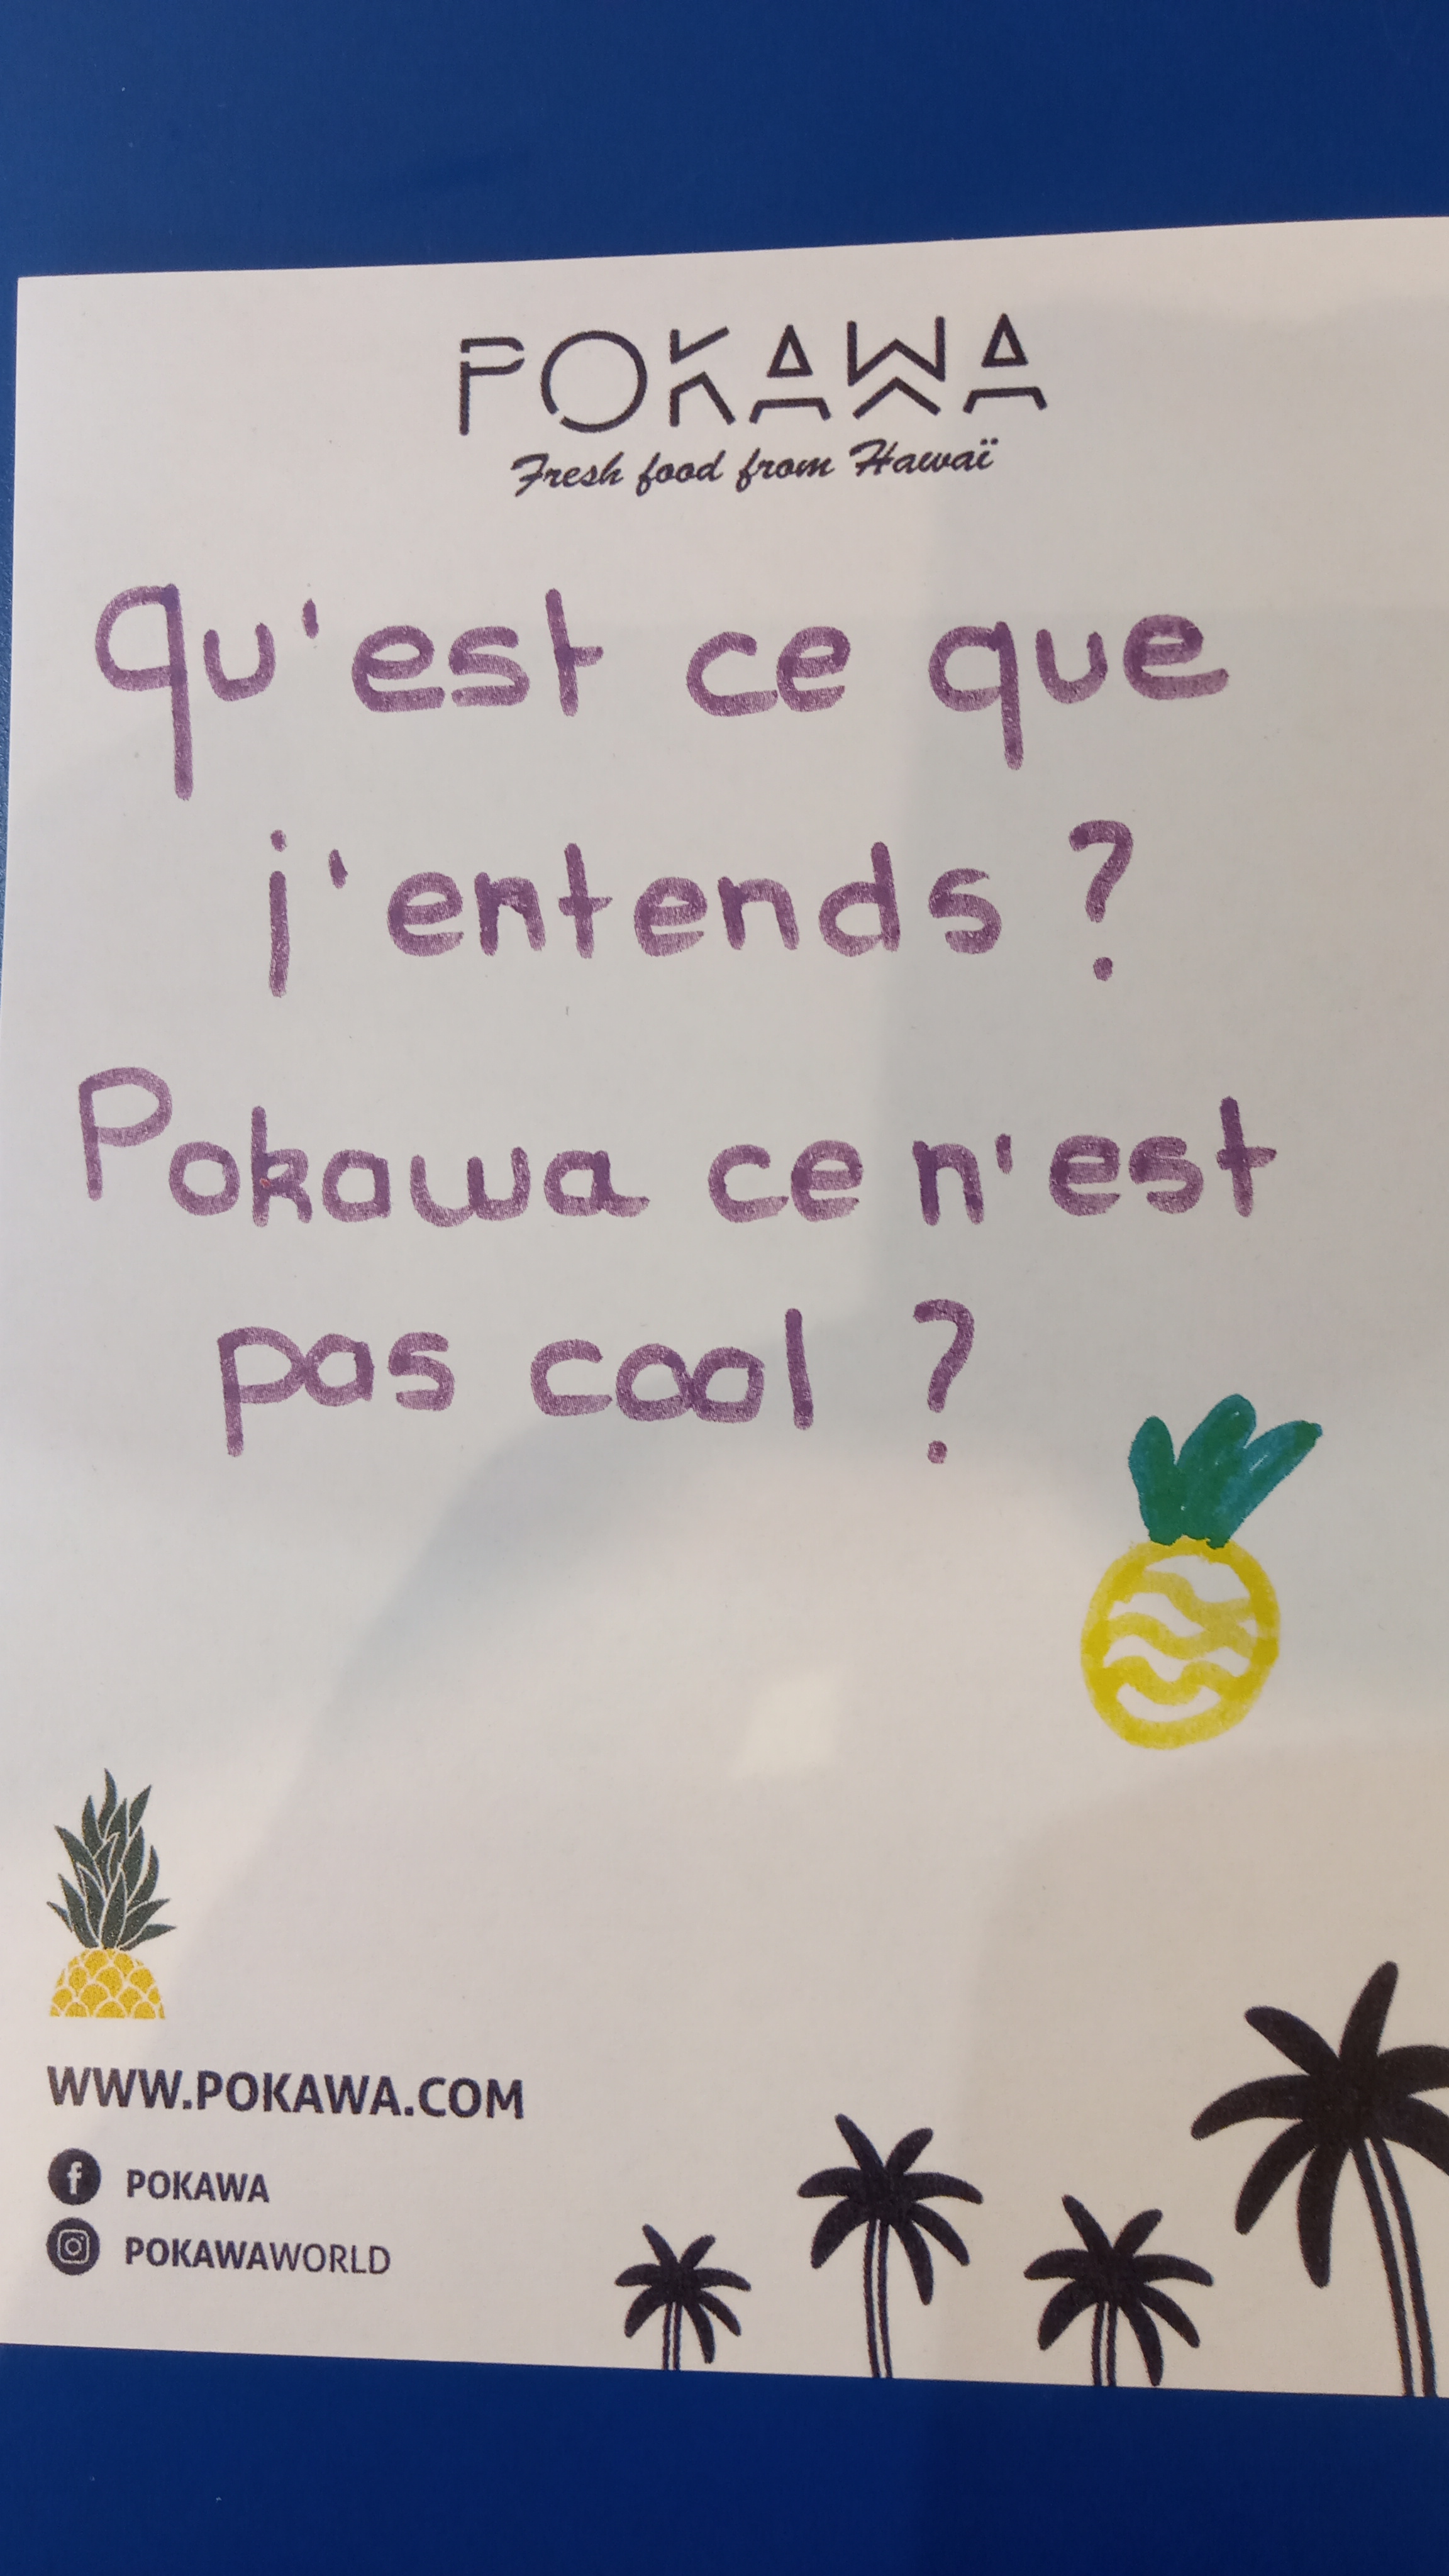 POKAWA
Fresh food from Hawaï
Qu'est ce que
j'entends ?
Pokawa ce n'est
pas cool ?
WWW.POKAWA.COM
POKAWA
POKAWAWORLD